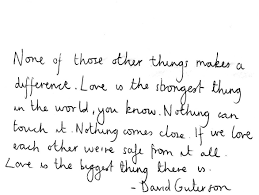 None of those other things makes a
difference. Love is the strongest thing
in the world, you know. Nothing can
touch it. Nothing comes close. If we love
each other we're safe from it all.
Love is the biggest thing there is.
- David Guterson